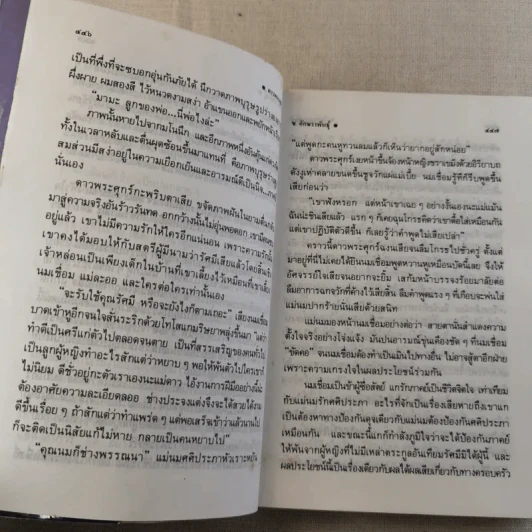 ๔๔๖
เป็นที่พึ่งที่จะซบอกอุ่นกันภัยได้ นึกวาดภาพบุรุษรูปร่าง
ผึ่งผาย ผมสองสี ไว้หนวดงามสง่า อ้าแขนออกและพยักหน้า
"มามะ ลูกของพ่อ...นี่พ่อไงล่ะ"
ภาพนั้นหายไปจากมโนนึก และอีกภาพหนึ่งอันคุ้นเคย
ทั้งในเวลาหลับและตื่นผุดซ้อนขึ้นมาแทนที่ คือภาพบุรุษ
สมส่วนมีสง่าอยู่ในความเยือกเย็นและอารมณ์ดีเป็นนิจ
นั่นเอง
ดาวพระศุกร์กะพริบตาเสีย ขจัดภาพฝันในยามตื่น
มาสู่ความจริงอันร้าวรานทด อกกว้างนั้นไม่อุ่นพอดอก
อยู่แล้ว เขาไม่มีความรักให้ใครอีกแน่นอน เพราะความรักนั้น
เขาคงได้มอบให้กับสตรีผู้มีนามว่ารัศมีเสียแล้วโดยสิ้น
เจ้าหล่อนเป็นเพียงเด็กในบ้านที่เขาเลี้ยงไว้เหมือนที่เขาเลี้ยง
นมเชื่อม แม่ละออ และใครต่อใครเท่านั้นเอง
"จะรับใช้คุณรัศมี หรือจะยังไงก็ตามเถอะ" เสียงนมเชื่อม
บาดเข้าหูอีกจนใจสั่นระริกด้วยโทโสแกมริษยาพลุ่งขึ้นมา
ทำดีเป็นศรีแก่ตัวไปตลอดจนตาย เป็นที่สรรเสริญของคนทั่วไป
เป็นลูกผู้หญิงทำอะไรสักแต่ว่าหยาบ ๆ พอให้พ้นตัวไปใครเขา
ไม่นิยม ดีชั่วอยู่กะตัวเราเองนะแม่ดาว ไอ้งานการฝีมืออย่างนี้น่ะ
ต้องอาศัยความละเอียดลออ ช่างประจงแต่งจึงจะได้สวยได้งาม
ดีขึ้นเรื่อย ๆ ถ้าสักแต่ว่าทำแพร่ด ๆ พอเสร็จเข้าแล้วนานไป
ก็จะติดเป็นนิสัยแก้ไม่หาย กลายเป็นคนหยาบไป"
"คุณนมก็ช่างพรรณนา" แม่นมศศิประภาหัวเราะ
๔๔๗
"แต่พูดกะคนหูทวนลมแล้วก็เห็นว่ายากอยู่สักหน่อย"
ดาวพระศุกร์เลยหน้าขึ้นจ้องหน้าหญิงชราเขม็งด้วยอิริยาบถ
เสียก่อนว่า
"เขาฟังหรอก แต่หน้าเขาเฉย ๆ อย่างงั้นเองนะแม่เม้า
ฉันน่ะชินเสียแล้ว แรก ๆ ก็เคยฉุนโกรธคิดว่าเขาดื้อใส่เหมือนกัน
แต่เขาปฏิบัติตัวดีขึ้น ก็เลยรู้ว่าคำพูดไม่เสียเปล่า"
คราวนี้ดาวพระศุกร์ฉงนเสียจนลืมโกรธไปชั่วครู่ ตั้งแต่
มาอยู่ที่นี่ไม่เคยได้ยินนมเชื่อมพูดหวานหูเหมือนบัดนี้เลย จึงให้
อัศจรรย์ใจเสียจนอยากจะยิ้ม เสก้มหน้าบรรจงร้อยมาลัยต่อ
ลืมอาการฉกจวักที่ค้างไว้เสียสิ้น ลืมคำพูดแรง ๆ ที่เกือบจะพ่นใส่
แม่นมปากร้ายนั่นเสียด้วยสนิท
แม่นมมองหน้านมเชื่อมอย่างต่อว่า สายตานั้นสำแดงความ
ตั้งใจจริงอย่างโจ่งแจ้ง มันปนอารมณ์ขุ่นเคืองขัด ๆ ที่นมเชื่อม
"ขัดคอ" จนนมเชื่อมต้องทำเป็นเมินไปทางอื่น ไม่อาจสู้ตาอีกฝ่าย
เพราะความเกรงใจในผลประโยชน์ร่วมกัน
นมเชื่อมเป็นข้าผู้ซื่อสัตย์ แกรักภาคย์เป็นชีวิตจิตใจ เท่าเทียม
กับแม่นมรักศศิประภา อะไรที่จักเป็นเรื่องเสียหายถึงเขาแก
เป็นต้องหาทางป้องกันดุจเดียวกับแม่นมต้องป้องกันศศิประภา
เหมือนกัน และขณะนี้แกก็กำลังภูมิใจว่าจะได้ป้องกันภาคย์
ให้พ้นจากผู้หญิงที่ไม่มีเหล่าตระกูลอันเทียมรัศมีมิได้ผู้นี้ และ
ผลประโยชน์นี้เป็นเรื่องเดียวกับผลได้ผลเสียเกี่ยวกับทางครอบครัว